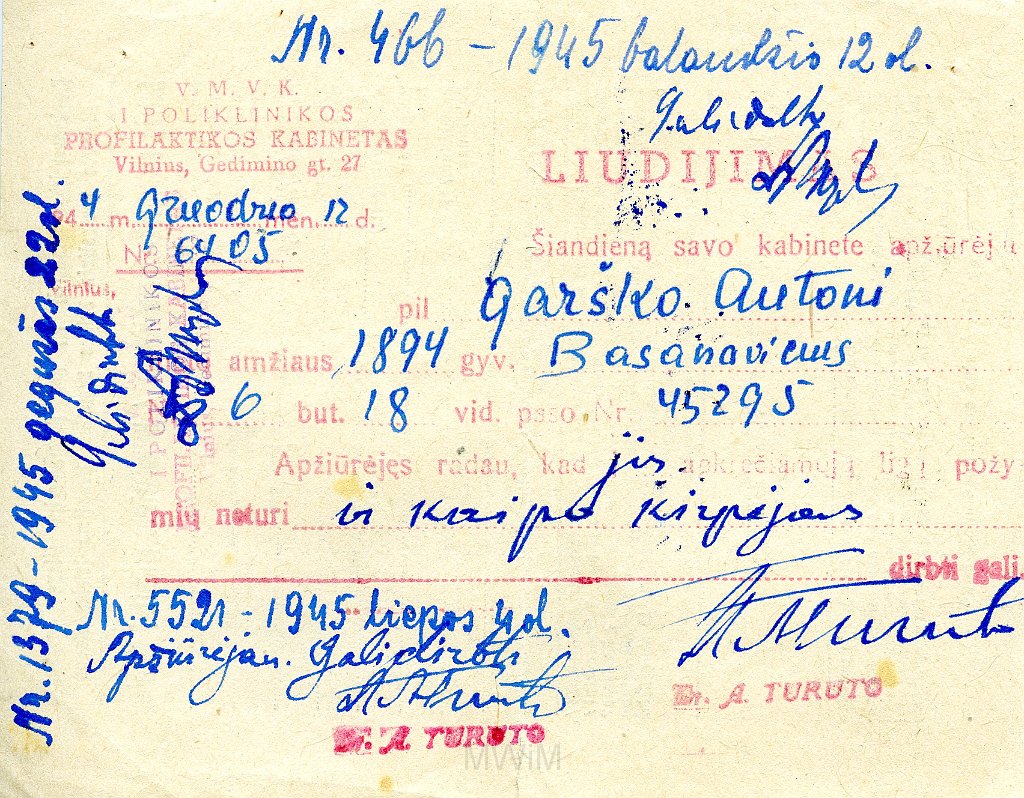 Nr. 466 - 1945 balandžio 12 d.
V. M. V. K.
I POLIKLINIKOS
PROFILAKTIKOS KABINETAS
Vilnius, Gedimino gt. 27
Gali dirbti
LIUDIJIMAS
94 4 m. Gruodžio mėn. 12 d.
Nr. 6405
Vilnius,
Šiandieną savo kabinete apžiūrėjau
pil Garško Antoni
metų amžiaus 1894 gyv. Basanaviciaus
6 but. 18 vid. paso Nr. 45295
Apžiūrėjęs radau, kad jis apkrečiamųjų ligų požy
mių neturi ir kaipo kirpėjas
dirbti gali.
Nr. 5521 - 1945 liepos 4 d.
Apžiūrėjau. Gali dirbti
Dr. A. TURUTO
Dr. A. TURUTO
Nr. 1379 - 1945 gegužės 22 d.
Gali dirbti
MWiM